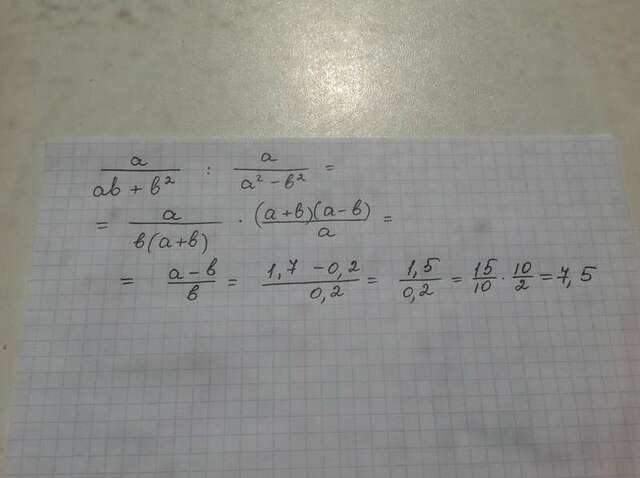 a/(ab + b²) : a/(a² − b²) =
= a/(b(a+b)) · ((a+b)(a−b))/a =
= (a−b)/b = (1,7 − 0,2)/0,2 = 1,5/0,2 = 15/10 · 10/2 = 7,5